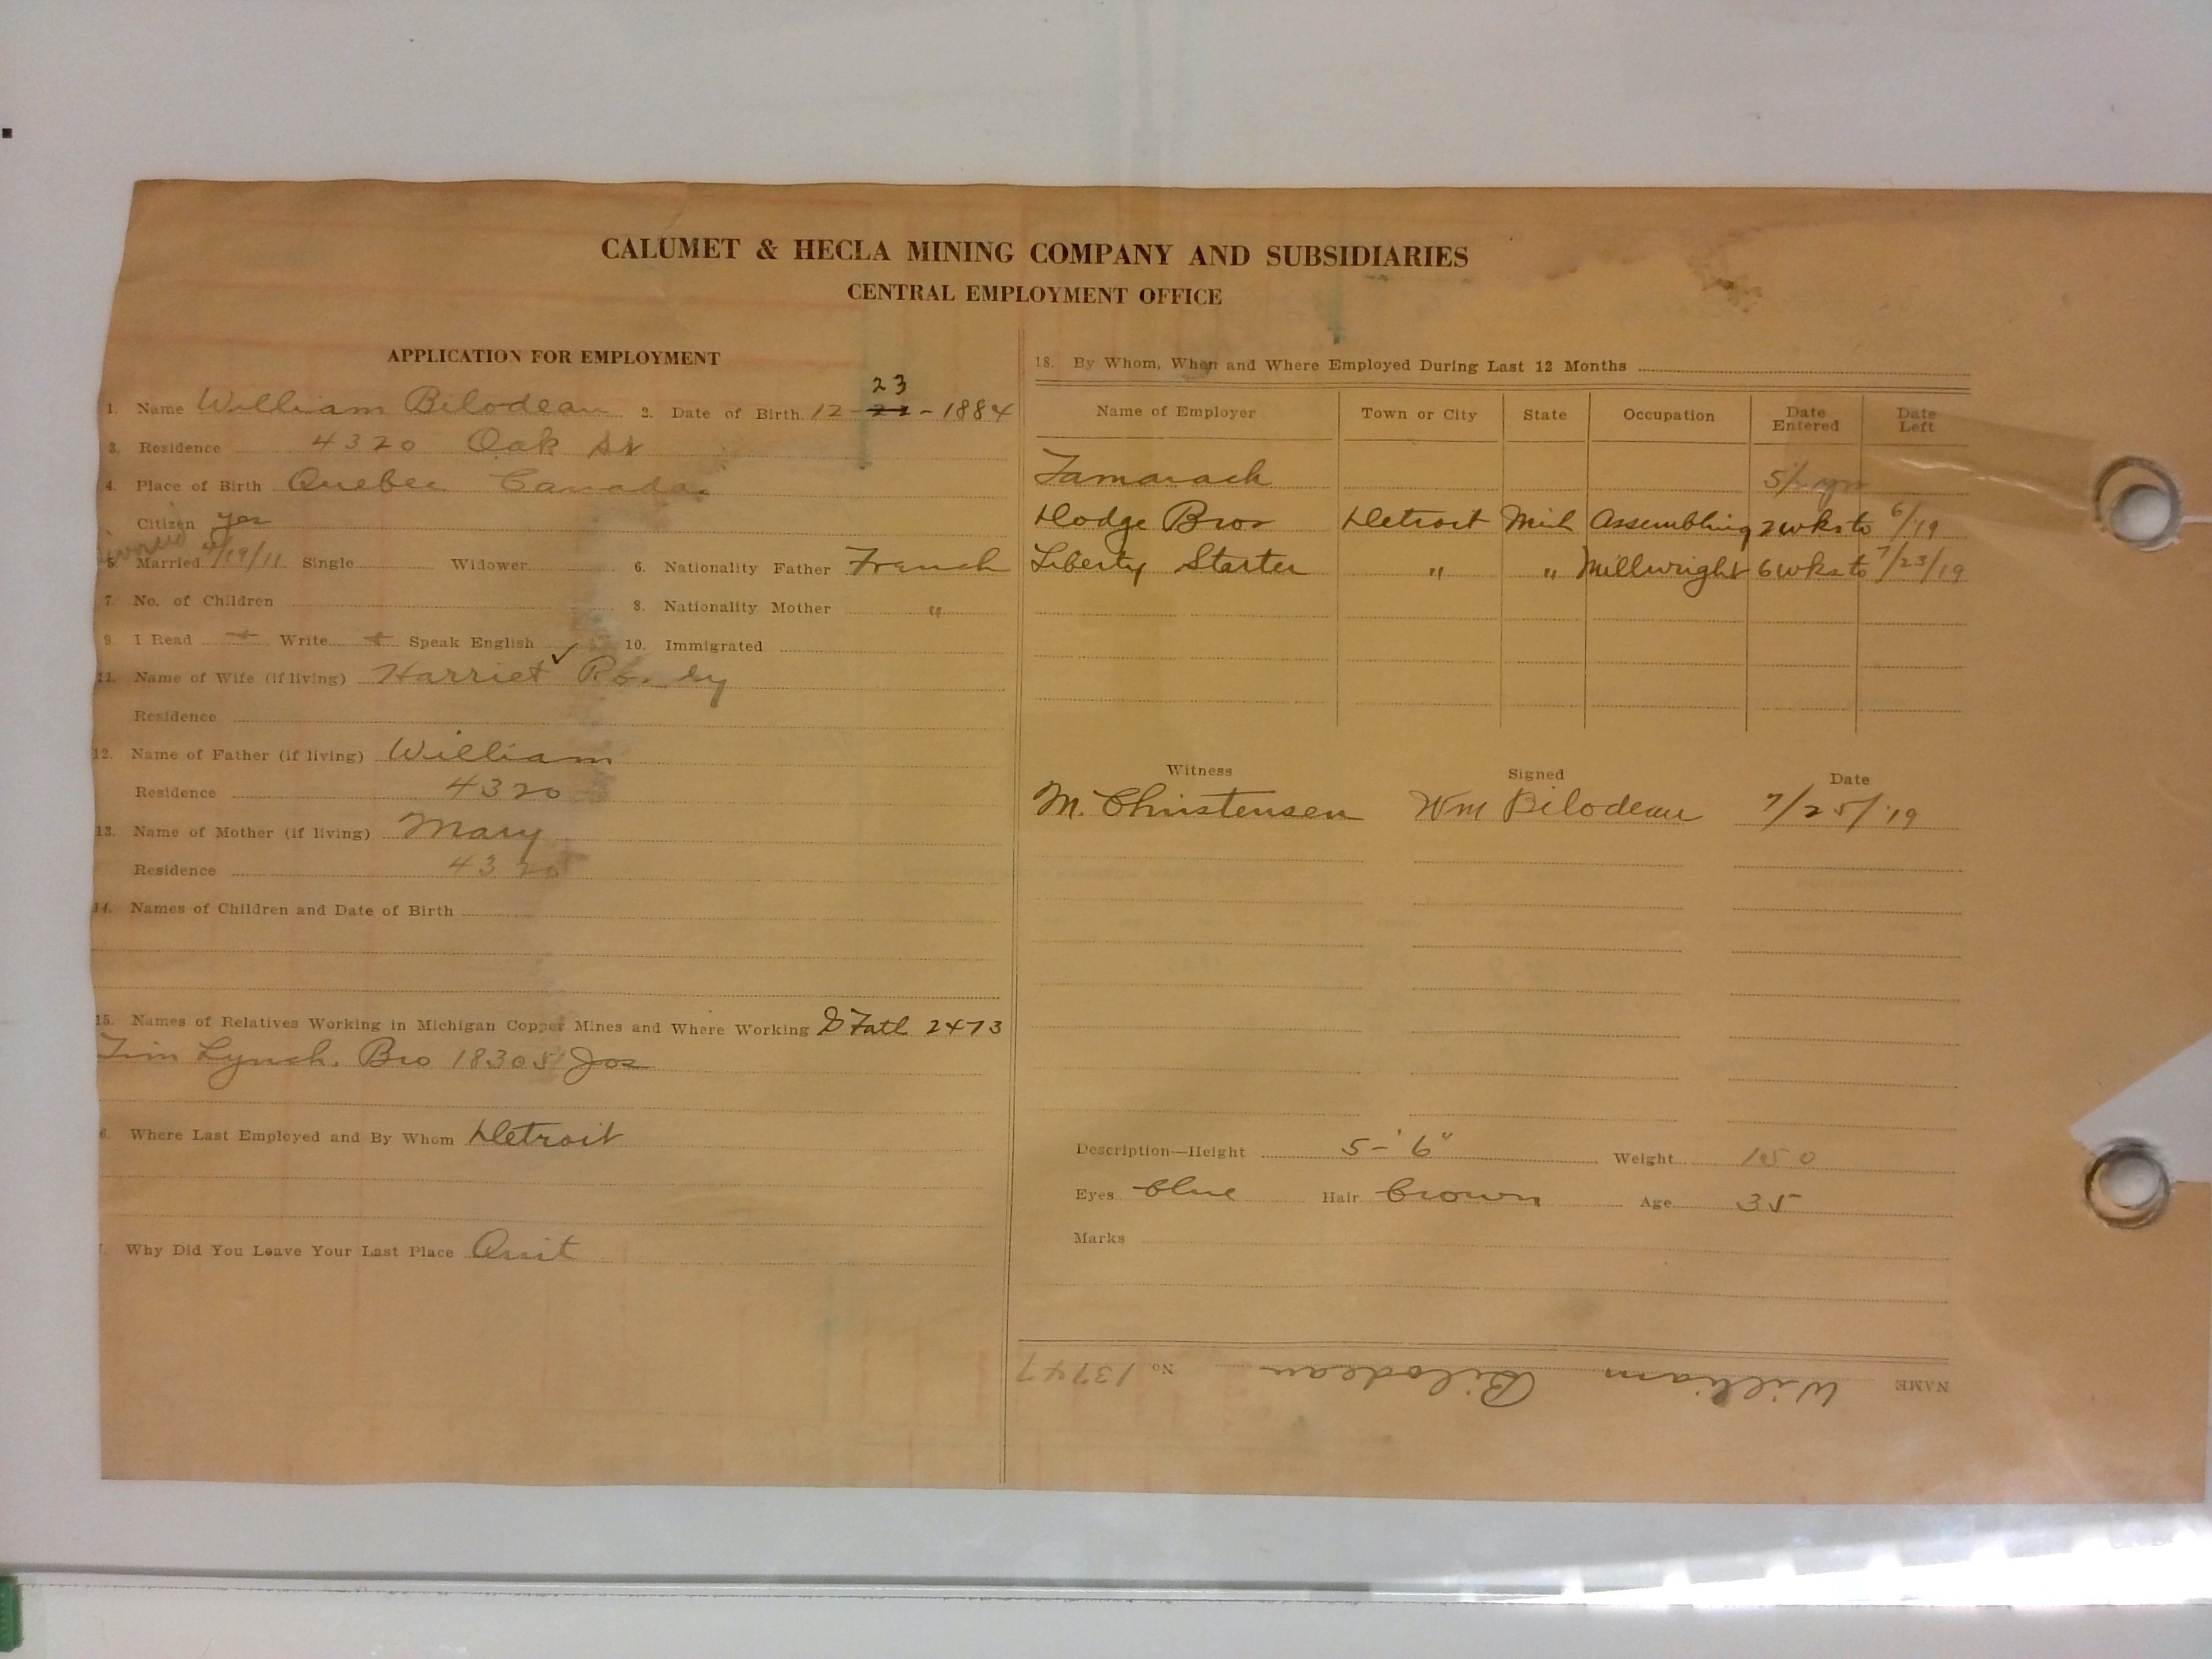 CALUMET & HECLA MINING COMPANY AND SUBSIDIARIES
CENTRAL EMPLOYMENT OFFICE
APPLICATION FOR EMPLOYMENT
23
1. Name William Bilodeau 2. Date of Birth 12- -1884
3. Residence 4320 Oak St
4. Place of Birth Quebec Canada.
Citizen yes
5. Married 4/19/11 Single Widower 6. Nationality Father French
7. No. of Children 8. Nationality Mother "
9. I Read + Write + Speak English ✓ 10. Immigrated
11. Name of Wife (if living) Harriet
Residence
12. Name of Father (if living) William
Residence 4320
13. Name of Mother (if living) Mary
Residence 4320
14. Names of Children and Date of Birth
15. Names of Relatives Working in Michigan Copper Mines and Where Working 2473
Tim Lynch. Bro 18305 Jos
6. Where Last Employed and By Whom Detroit
Why Did You Leave Your Last Place Quit
18. By Whom, When and Where Employed During Last 12 Months
Name of Employer Town or City State Occupation Date Entered Date Left
Tamarack 5½ yrs
Dodge Bros Detroit Mich Assembling 2 wks to 6/19
Liberty Starter " " Millwright 6 wks to 7/23/19
Witness Signed Date
M. Christensen Wm Bilodeau 7/25/'19
Description—Height 5-'6" Weight 150
Eyes blue Hair brown Age 35
Marks
NAME William Bilodeau No 13747